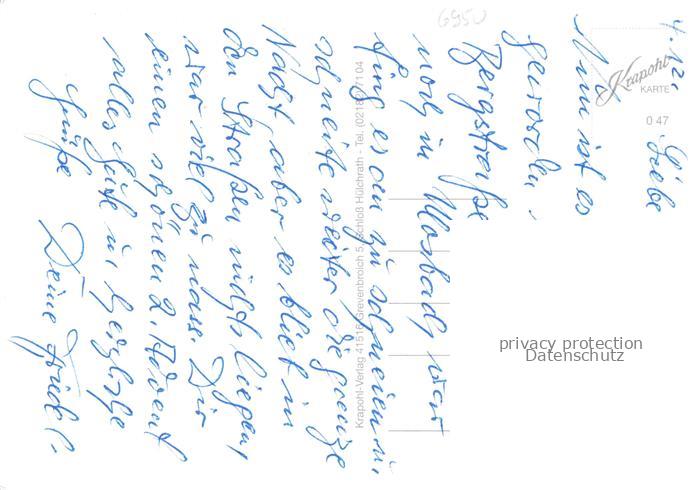 6950
4. 12. Liebe
Nun ist es
geworden.
Bergstraße
noch in Mosbach war
fing es an zu schneien u.
schneite weiter die ganze
Nacht, aber es blieb in
den Straßen nichts liegen,
war viel zu nass. Dir
einen schönen 2. Advent
alles Gute u. herzliche
Grüße Deine Friedel.
Krapohl
KARTE
0 47
Krapohl-Verlag 41516 Grevenbroich 5, Schloß Hülchrath - Tel. (02182) 7104
privacy protection
Datenschutz